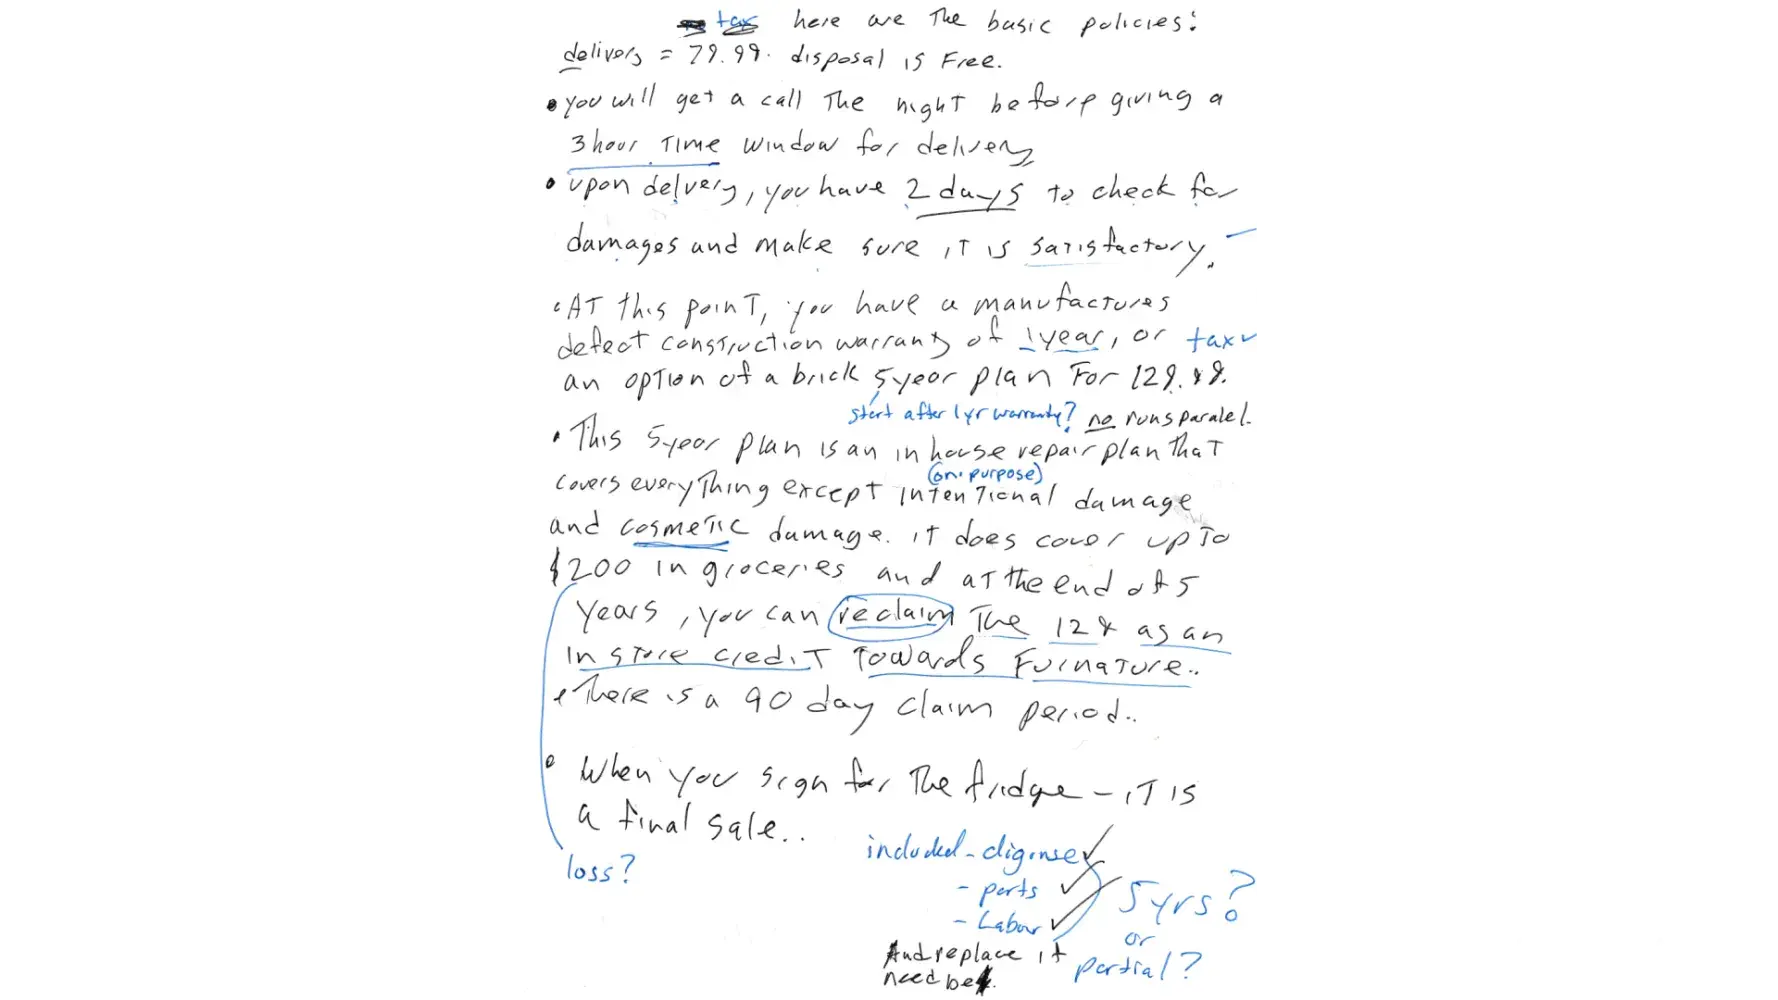 tax here are The basic policies:
delivery = 79.99. disposal is Free.
• you will get a call The night before giving a
3 hour Time window for delivery
• upon delvery, you have 2 days to check for
damages and make sure it is satisfactory.
• AT this point, you have a manufactures
defect construction warranty of 1 year, or tax
an option of a brick 5 year plan For 129.99.
start after 1 yr warranty? no runs paralel.
• This 5 year plan is an in house repair plan that
(on purpose)
covers everything except intentional damage
and cosmetic damage. it does cover up To
$200 in groceries and at the end of 5
years, you can reclaim The 129 as an
in store credit Towards Furnature..
• There is a 90 day claim period..
• When you sign for The fridge - it is
a final sale..
included - diginse
loss?
- parts
5 yrs?
- Labour
or
And replace if
partial?
need be.